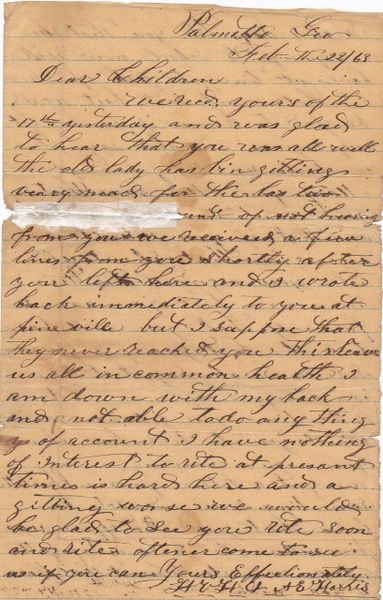 Palmetto Geo
Feb the 22/63
Dear Children
we recd yours of the
17th yesterday and was glad
to hear that you was all well
the old lady has bin gitting
veary mad for the las two
of not hearing
from you we received a few
lines from you shortly after
you left here and I wrote
back immediately to you at
pine ville but I suppose that
they never reached you this leaves
us all in common health I
am down with my back
and not able to do any thing
of account I have nothing
of interest to rite at presant
times is hard here and a
gitting worse we would
be glad to see you rite soon
and rite oftener come to see
us if you can Yours Effectionately
H & A E Harris